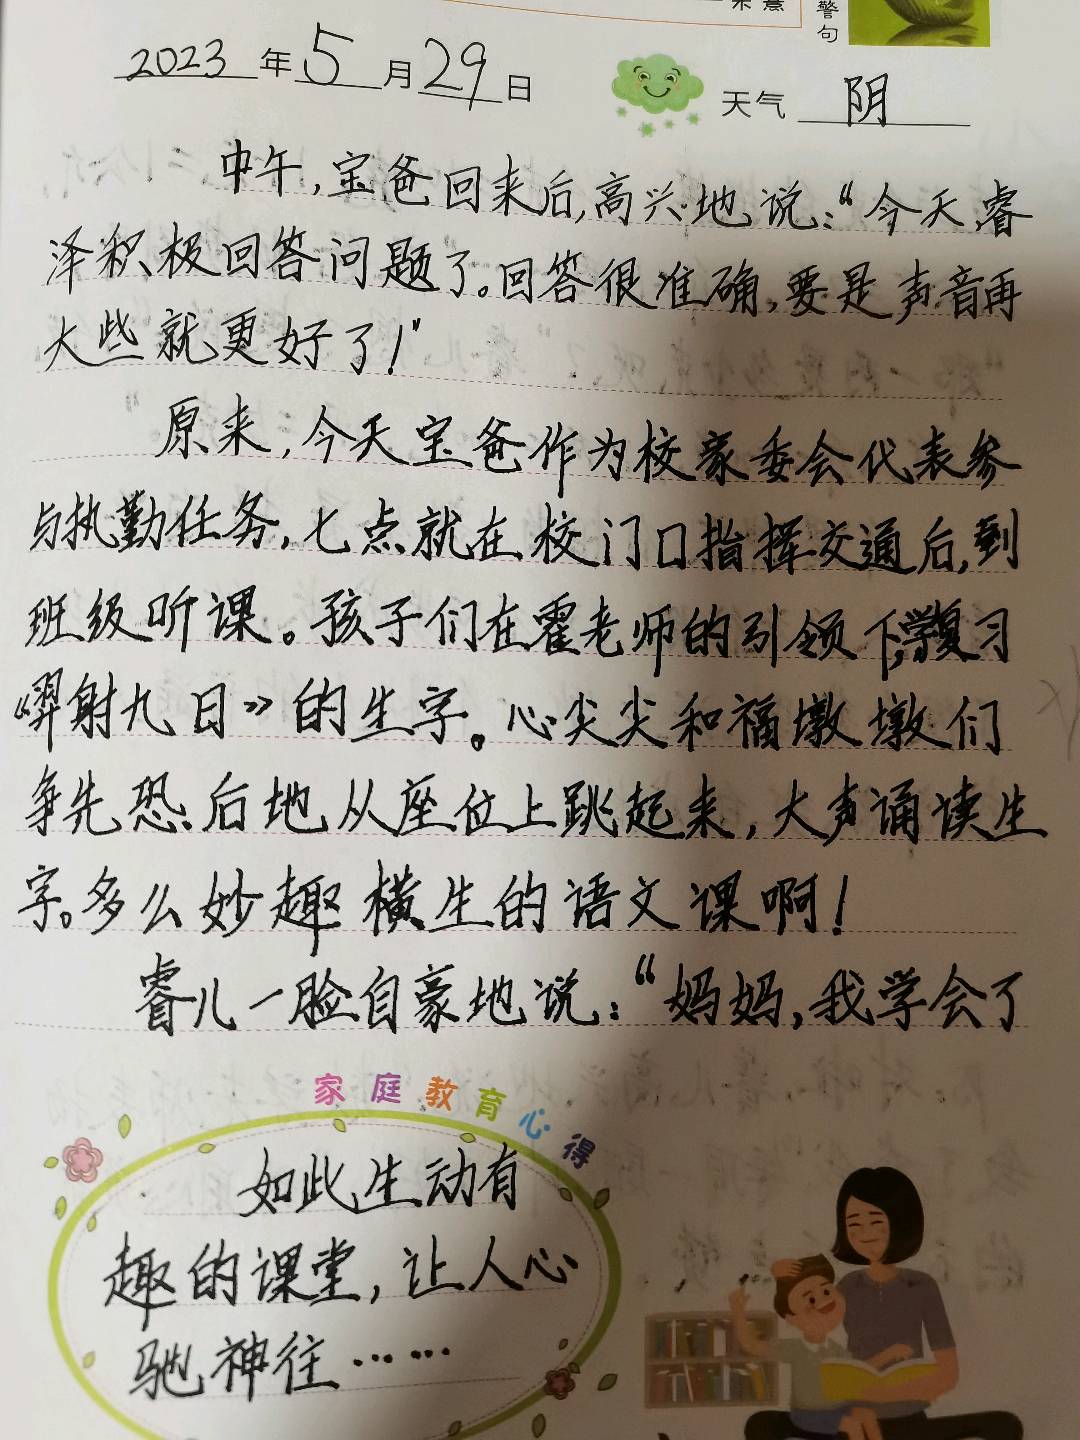 警句
2023年5月29日
天气 阴
中午,宝爸回来后,高兴地说:“今天,睿
泽积极回答问题了。回答很准确,要是声音再
大些就更好了!”
原来,今天宝爸作为校家委会代表参
与执勤任务,七点就在校门口指挥交通后,到
班级听课。孩子们在霍老师的引领下,复习
《羿射九日》的生字。心尖尖和福墩墩们
争先恐后地从座位上跳起来,大声诵读生
字。多么妙趣横生的语文课啊!
睿儿一脸自豪地说:“妈妈,我学会了
家庭教育心得
如此生动有
趣的课堂,让人心
驰神往……